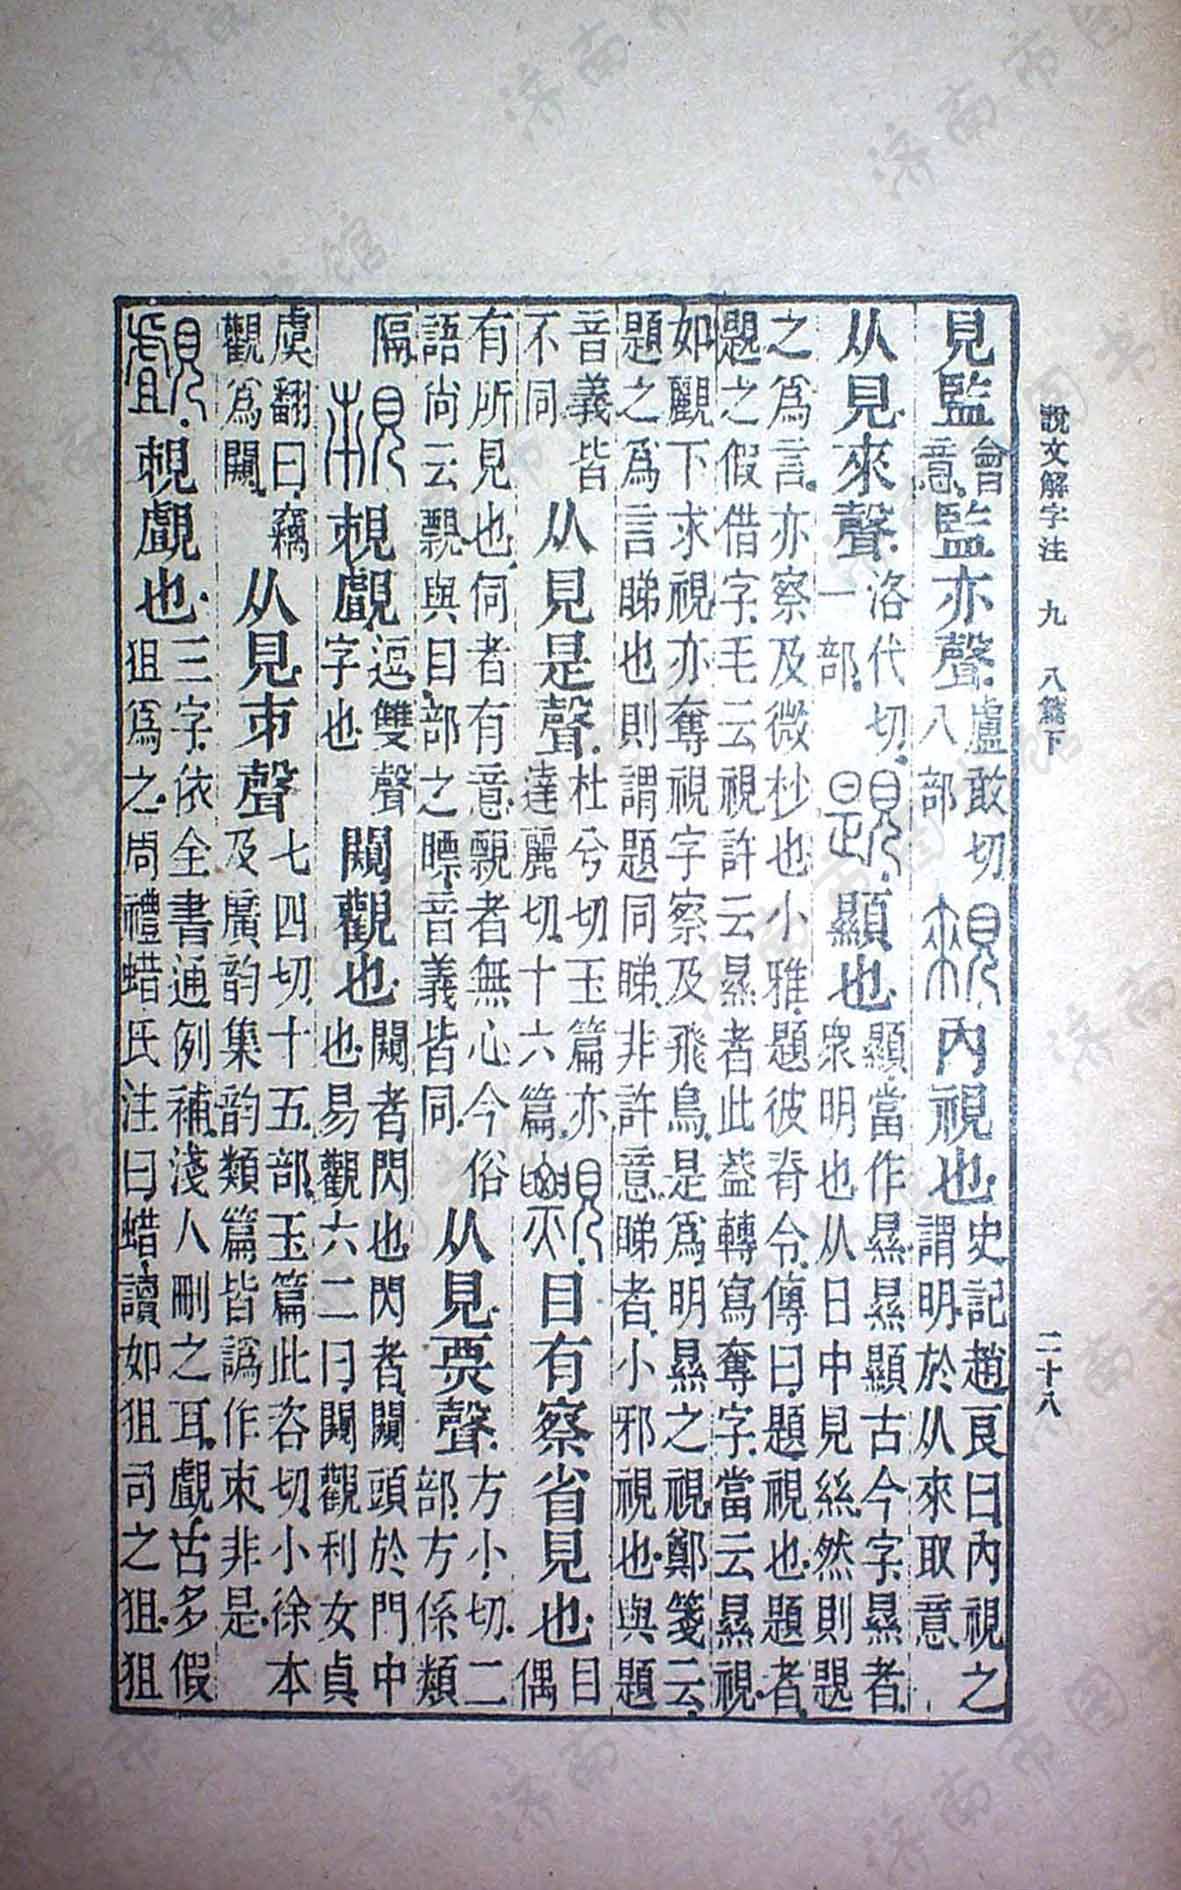 說文解字注　九　八篇下　二十八
見監會意監亦聲盧敢切八部內視也史記趙良曰內視之謂明於从來取意
从見來聲洛代切一部䚣顯也顯當作㬎㬎顯古今字㬎者衆明也从日中見絲然則䚣
之爲言亦察及微杪也小雅題彼脊令傳曰題視也題者䚣之假借字毛云視許云㬎者此葢轉寫奪字當云㬎視
如䚕下求視亦奪視字察及飛鳥是爲明㬎之視鄭箋云題之爲言睇也則謂題同睇非許意睇者小邪視也與題
音義皆不同从見是聲杜兮切玉篇亦達麗切十六篇䙳目有察省見也目偶
有所見也伺者有意䙳者無心今俗語尚云䙳與目部之瞟音義皆同从見票聲方小切二部方係類
隔䙿䙿覰逗雙聲字也闚觀也闚者閃也閃者闚頭於門中也易觀六二曰闚觀利女貞
虞翻曰竊觀爲闚从見朿聲七四切十五部玉篇此咨切小徐本及廣韵集韵類篇皆譌作束非是
覰䙿覰也三字依全書通例補淺人刪之耳覰古多假狙爲之周禮蜡氏注曰蜡讀如狙司之狙狙